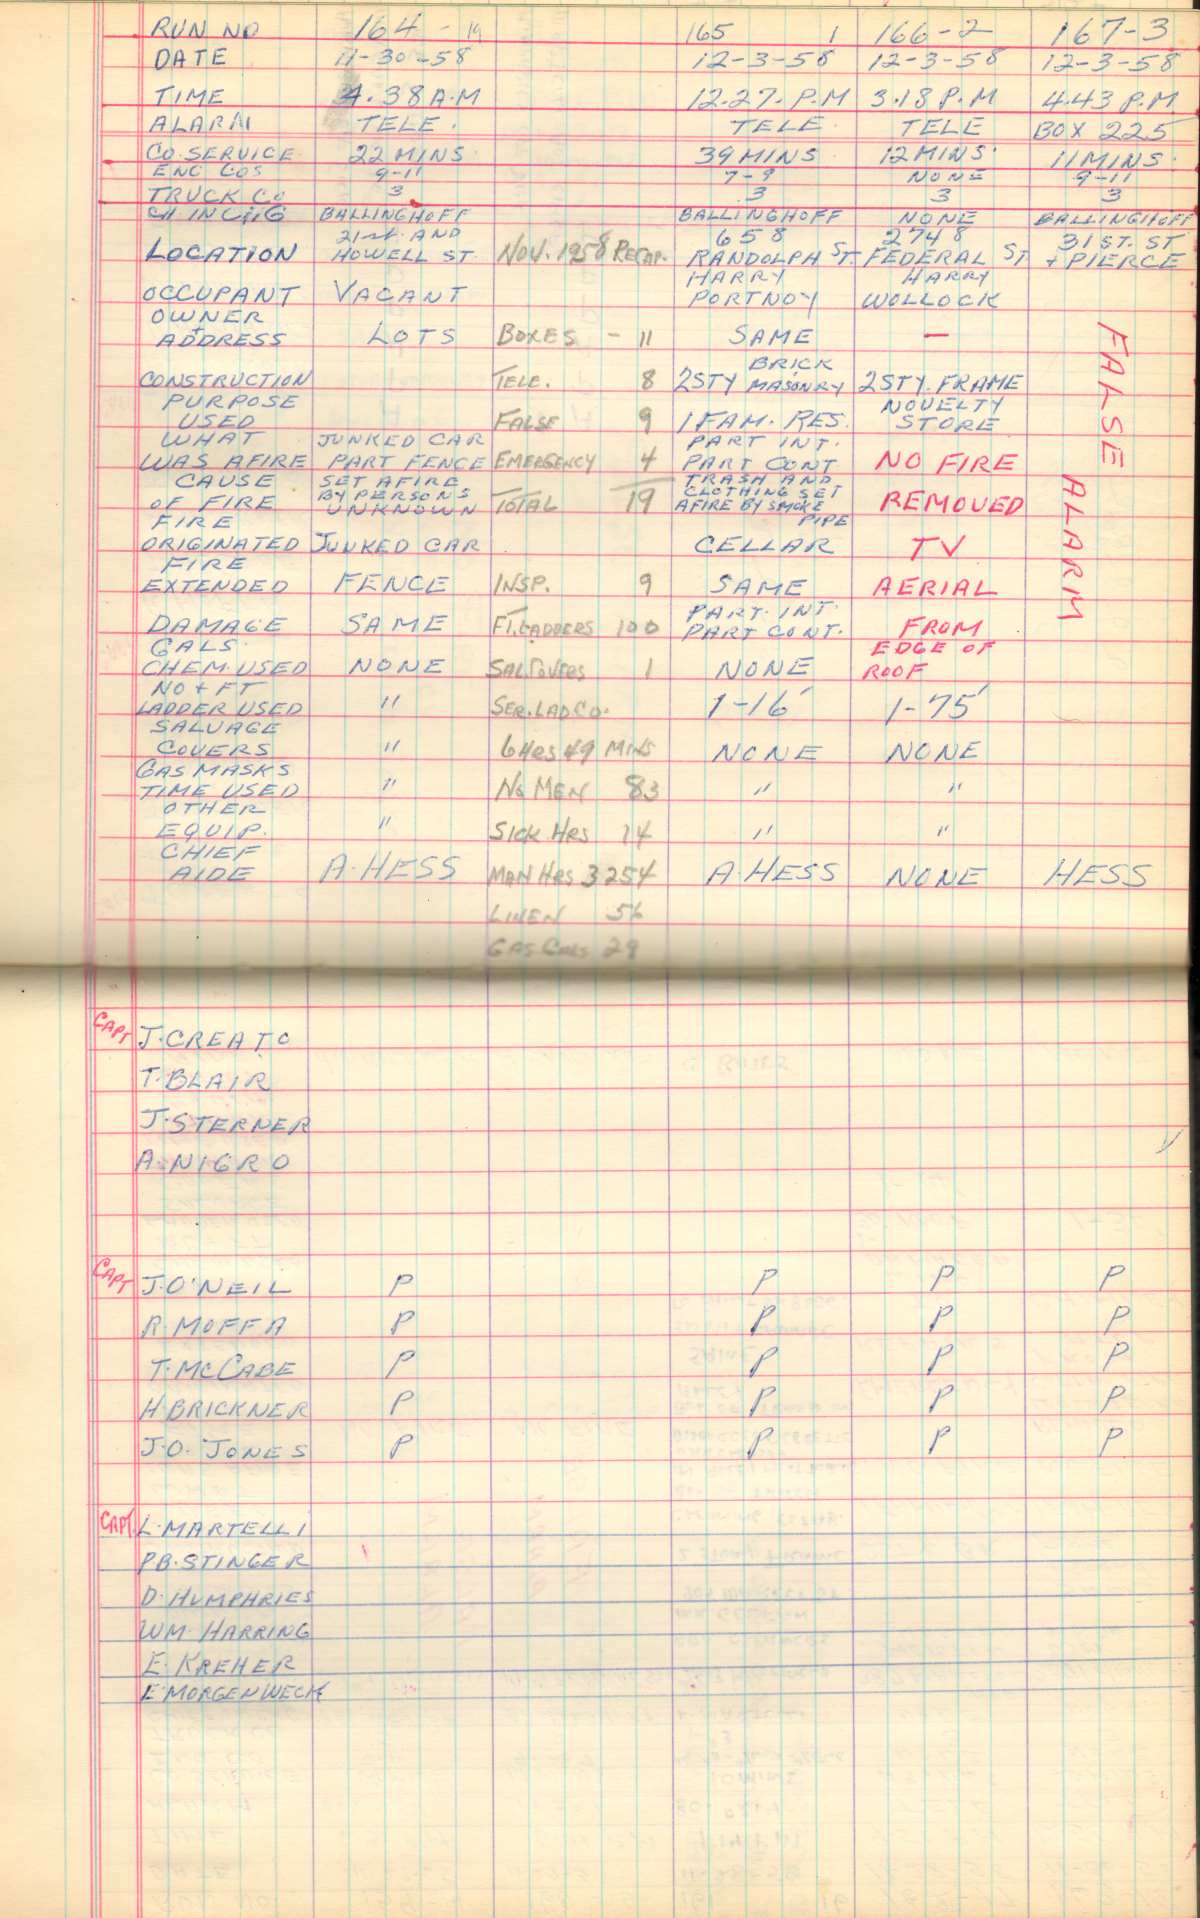 RUN NO 164 - 19 165 1 166-2 167-3
DATE 11-30-58 12-3-58 12-3-58 12-3-58
TIME 4.38 A.M 12.27. P.M 3.18 P.M 4.43 P.M
ALARM TELE. TELE. TELE BOX 225
CO. SERVICE 22 MINS. 39 MINS. 12 MINS. 11 MINS.
ENG COS 9-11 7-9 NONE 9-11
TRUCK CO 3 3 3 3
CH INCHG BALLINGHOFF BALLINGHOFF NONE BALLINGHOFF
21st. AND 658 2748 31ST. ST
LOCATION HOWELL ST. NOV. 1958 RECAP. RANDOLPH ST. FEDERAL ST + PIERCE
HARRY HARRY
OCCUPANT VACANT PORTNOY WOLLOCK
OWNER
+
ADDRESS LOTS BOXES - 11 SAME —
BRICK
CONSTRUCTION TELE. 8 2STY MASONRY 2STY. FRAME
PURPOSE NOVELTY
USED FALSE 9 1 FAM. RES. STORE
WHAT JUNKED CAR PART INT.
WAS AFIRE PART FENCE EMERGENCY 4 PART CONT NO FIRE
CAUSE SET AFIRE TRASH AND
BY PERSONS CLOTHING SET
OF FIRE UNKNOWN TOTAL 19 AFIRE BY SMOKE REMOVED
FIRE PIPE
ORIGINATED JUNKED CAR CELLAR TV
FIRE
EXTENDED FENCE INSP. 9 SAME AERIAL
PART. INT.
DAMAGE SAME FT. LADDERS 100 PART CONT. FROM
GALS. EDGE OF
CHEM. USED NONE SAL. COVERS 1 NONE ROOF
NO + FT
LADDER USED " SER. LAD CO. 1-16' 1-75'
SALVAGE
COVERS " 6 HRS 49 MINS NONE NONE
GAS MASKS
TIME USED " No MEN 83 " "
OTHER
EQUIP. " SICK HRS 14 " "
CHIEF
AIDE A. HESS MAN HRS 3254 A. HESS NONE HESS
LINEN 56
GAS GALS 29
FALSE ALARM
CAPT J. CREATO
T. BLAIR
J. STERNER
A. NIGRO
CAPT J. O'NEIL P P P P
R. MOFFA P P P P
T. MCCABE P P P P
H. BRICKNER P P P P
J. O. JONES P P P P
CAPT. L. MARTELLI
P.B. STINGER
D. HUMPHRIES
WM. HARRING
E. KREHER
E. MORGENWECK